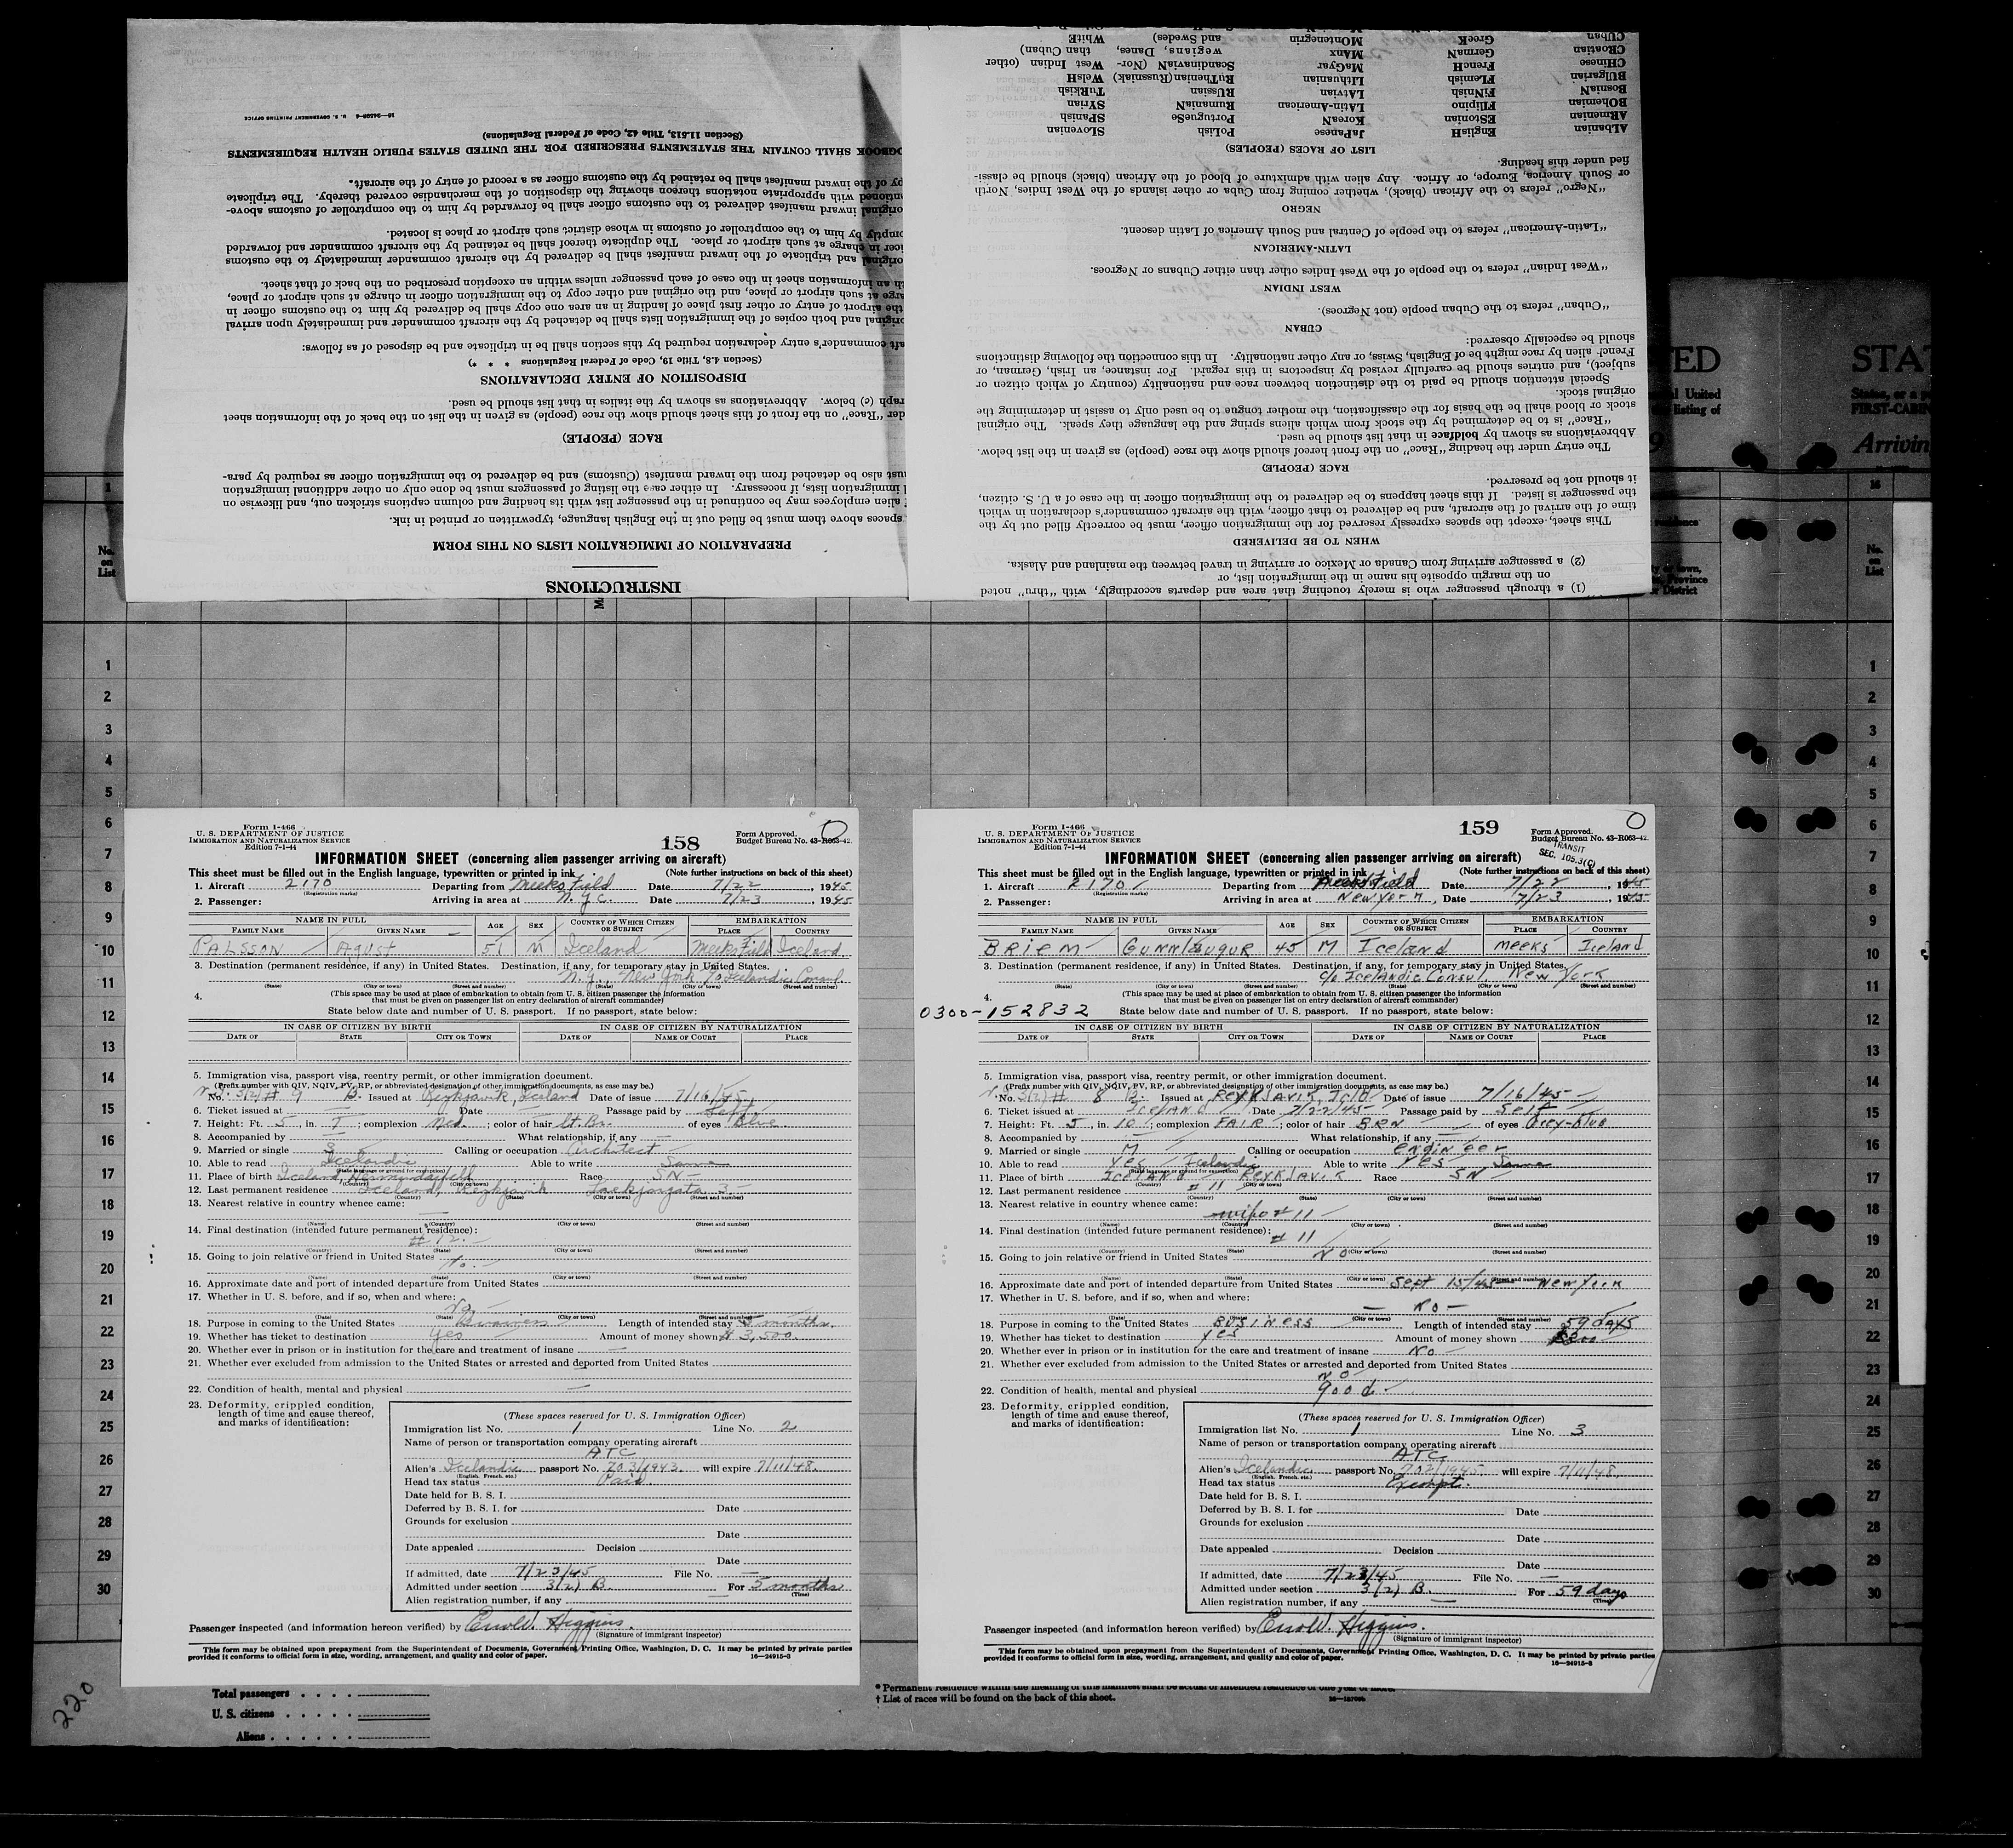 INSTRUCTIONS
PREPARATION OF IMMIGRATION LISTS ON THIS FORM
spaces above them must be filled out in the English language, typewritten or printed in ink.
alien employees may be continued in the passenger list with its heading and column captions stricken out, and likewise on
immigration lists, if necessary. In either case the listing of passengers must be done only on other additional immigration
ust also be detached from the inward manifest (Customs) and be delivered to the immigration officer as required by para-
RACE (PEOPLE)
der "Race" on the front of this sheet should show the race (people) as given in the list on the back of the information sheet
raph (c) below. Abbreviations as shown by the italics in that list should be used.
DISPOSITION OF ENTRY DECLARATIONS
(Section 4.8, Title 19, Code of Federal Regulations * * *)
aft commander's entry declaration required by this section shall be in triplicate and be disposed of as follows:
original and both copies of the immigration lists shall be detached by the aircraft commander and immediately upon arrival
the airport of entry or other first place of landing in an area one copy shall be delivered by him to the customs officer in
arge at such airport or place, and the original and other copy to the immigration officer in charge at such airport or place,
th an information sheet in the case of each passenger unless within an exception prescribed on the back of that sheet.
original and triplicate of the inward manifest shall be delivered by the aircraft commander immediately to the customs
icer in charge at such airport or place. The duplicate thereof shall be retained by the aircraft commander and forwarded
omptly by him to the comptroller of customs in whose district such airport or place is located.
original inward manifest delivered to the customs officer shall be forwarded by him to the comptroller of customs above-
entioned with appropriate notations thereon showing the disposition of the merchandise covered thereby. The triplicate
py of the inward manifest shall be retained by the customs officer as a record of entry of the aircraft.
OGBOOK SHALL CONTAIN THE STATEMENTS PRESCRIBED FOR THE UNITED STATES PUBLIC HEALTH REQUIREMENTS
(Section 11.513, Title 42, Code of Federal Regulations)
U. S. GOVERNMENT PRINTING OFFICE
(1) a through passenger who is merely touching that area and departs accordingly, with "thru" noted
on the margin opposite his name in the immigration list, or
(2) a passenger arriving from Canada or Mexico or arriving in travel between the mainland and Alaska.
WHEN TO BE DELIVERED
This sheet, except the spaces expressly reserved for the immigration officer, must be correctly filled out by the
time of the arrival of the aircraft, and be delivered to that officer, with the aircraft commander's declaration in which
the passenger is listed. If this sheet happens to be delivered to the immigration officer in the case of a U. S. citizen,
it should not be preserved.
RACE (PEOPLE)
The entry under the heading "Race" on the front hereof should show the race (people) as given in the list below.
Abbreviations as shown by boldface in that list should be used.
"Race" is to be determined by the stock from which aliens spring and the language they speak. The original
stock or blood shall be the basis for the classification, the mother tongue to be used only to assist in determining the
original stock.
Special attention should be paid to the distinction between race and nationality (country of which citizen or
subject), and entries should be carefully revised by inspectors in this regard. For instance, an Irish, German, or
French alien by race might be of English, Swiss, or any other nationality. In this connection the following distinctions
should be especially observed:
CUBAN
"Cuban" refers to the Cuban people (not Negroes).
WEST INDIAN
"West Indian" refers to the people of the West Indies other than either Cubans or Negroes.
LATIN-AMERICAN
"Latin-American" refers to the people of Central and South America of Latin descent.
NEGRO
"Negro" refers to the African (black), whether coming from Cuba or other islands of the West Indies, North
or South America, Europe, or Africa. Any alien with admixture of blood of the African (black) should be classi-
fied under this heading.
LIST OF RACES (PEOPLES)
ALbanian EnglisH JaPanese PoLish SLovenian
ARmenian EStonian KoreaN PortugueSe SPanish
BOhemian FIlipino LAtin-American RumaniaN SYrian
BosniaN FiNnish LATvian RUssian TuRkish
BUlgarian FLemish LIthuanian RuThenian (Russniak) WelsH
CHinese FrencH MaGyar ScandinaviaN (Nor- West Indian (other
CRoatian GermaN MAnx wegians, Danes, than Cuban)
CUban GreeK MOntenegrin and Swedes) WhitE
ED
United
listing of
STAT
States, or a p
FIRST-CABIN
Arrivin
No. on List
1
2
3
4
5
6
7
8
9
10
11
12
13
14
15
16
17
18
19
20
21
22
23
24
25
26
27
28
29
30
Form I-466
U. S. DEPARTMENT OF JUSTICE
IMMIGRATION AND NATURALIZATION SERVICE
Edition 7-1-44
158
Form Approved.
Budget Bureau No. 43-R063-42.
INFORMATION SHEET (concerning alien passenger arriving on aircraft)
This sheet must be filled out in the English language, typewritten or printed in ink. (Note further instructions on back of this sheet)
1. Aircraft 2170 Departing from Meeks Field Date 7/22, 1945
(Registration marks)
2. Passenger: Arriving in area at N.Y.C. Date 7/23, 1945
NAME IN FULL AGE SEX COUNTRY OF WHICH CITIZEN OR SUBJECT EMBARKATION
FAMILY NAME GIVEN NAME PLACE COUNTRY
PALSSON Agust 51 M Iceland Meeks Field Iceland
3. Destination (permanent residence, if any) in United States. Destination, if any, for temporary stay in United States.
N.Y., New York % Icelandic Consul.
(State) (City or town) (Street and number) (State) (City or town) (Street and number)
4. (This space may be used at place of embarkation to obtain from U. S. citizen passenger the information
that must be given on passenger list on entry declaration of aircraft commander)
State below date and number of U. S. passport. If no passport, state below:
IN CASE OF CITIZEN BY BIRTH IN CASE OF CITIZEN BY NATURALIZATION
DATE OF STATE CITY OR TOWN DATE OF NAME OF COURT PLACE
5. Immigration visa, passport visa, reentry permit, or other immigration document.
(Prefix number with QIV, NQIV, PV, RP, or abbreviated designation of other immigration documents, as case may be.)
No. 3(2) # 9 B. Issued at Reykjavik, Iceland Date of issue 7/16/45
6. Ticket issued at — Date — Passage paid by Self
7. Height: Ft. 5, in. 7; complexion Med.; color of hair Lt. Br. of eyes Blue
8. Accompanied by — What relationship, if any —
9. Married or single S Calling or occupation Architect
10. Able to read Icelandic Able to write Same
(State language or ground for exemption)
11. Place of birth Iceland, Race SN
(Country) (City or town)
12. Last permanent residence Iceland, Reykjavik Laekjargata 3
(Country) (City or town) (Street and number)
13. Nearest relative in country whence came: —
(Name) (Country) (City or town) (Street and number)
14. Final destination (intended future permanent residence): # 12.
(Country) (State) (City or town) (Street and number)
15. Going to join relative or friend in United States No.
(Name) (State) (City or town) (Street and number)
16. Approximate date and port of intended departure from United States
17. Whether in U. S. before, and if so, when and where: No.
(Date) (State) (City or town) (Street and number)
18. Purpose in coming to the United States Business Length of intended stay 5 months.
19. Whether has ticket to destination Yes Amount of money shown # 3,500.
20. Whether ever in prison or in institution for the care and treatment of insane —
21. Whether ever excluded from admission to the United States or arrested and deported from United States
—
22. Condition of health, mental and physical —
23. Deformity, crippled condition,
length of time and cause thereof,
and marks of identification:
(These spaces reserved for U. S. Immigration Officer)
Immigration list No. 1 Line No. 2
Name of person or transportation company operating aircraft
ATC
Alien's Icelandic passport No. 203/1943. will expire 7/11/48.
(English, French, etc.)
Head tax status Paid.
Date held for B. S. I.
Deferred by B. S. I. for Date
Grounds for exclusion
Date
Date appealed Decision
Date
If admitted, date 7/23/45 File No. —
Admitted under section 3(2) B. For 5 months
(Time)
Alien registration number, if any —
Passenger inspected (and information hereon verified) by Errol W. Higgins.
(Signature of immigrant inspector)
This form may be obtained upon prepayment from the Superintendent of Documents, Government Printing Office, Washington, D. C. It may be printed by private parties
provided it conforms to official form in size, wording, arrangement, and quality and color of paper. 16—24915-3
Form I-466
U. S. DEPARTMENT OF JUSTICE
IMMIGRATION AND NATURALIZATION SERVICE
Edition 7-1-44
159
Form Approved.
Budget Bureau No. 43-R063-42.
TRANSIT
SEC. 105.3(C)
INFORMATION SHEET (concerning alien passenger arriving on aircraft)
This sheet must be filled out in the English language, typewritten or printed in ink. (Note further instructions on back of this sheet)
1. Aircraft 2170 Departing from Meeks Field Date 7/22, 1945
(Registration marks)
2. Passenger: Arriving in area at New York, Date 7/23, 1945
NAME IN FULL AGE SEX COUNTRY OF WHICH CITIZEN OR SUBJECT EMBARKATION
FAMILY NAME GIVEN NAME PLACE COUNTRY
BRIEM GUNNLAUGUR 45 M Iceland MEEKS Iceland
3. Destination (permanent residence, if any) in United States. Destination, if any, for temporary stay in United States.
c/o Icelandic Consul, New York
(State) (City or town) (Street and number) (State) (City or town) (Street and number)
4. (This space may be used at place of embarkation to obtain from U. S. citizen passenger the information
that must be given on passenger list on entry declaration of aircraft commander)
0300-152832 State below date and number of U. S. passport. If no passport, state below:
IN CASE OF CITIZEN BY BIRTH IN CASE OF CITIZEN BY NATURALIZATION
DATE OF STATE CITY OR TOWN DATE OF NAME OF COURT PLACE
5. Immigration visa, passport visa, reentry permit, or other immigration document.
(Prefix number with QIV, NQIV, PV, RP, or abbreviated designation of other immigration documents, as case may be.)
No. 3(2) # 8 B. Issued at REYKJAVIK, Icld Date of issue 7/16/45
6. Ticket issued at ICELAND Date 7/22/45 Passage paid by Self
7. Height: Ft. 5, in. 10; complexion FAIR; color of hair BRN of eyes Grey-Blue
8. Accompanied by — What relationship, if any —
9. Married or single M Calling or occupation engineer
10. Able to read Yes Icelandic Able to write YES Same
(State language or ground for exemption)
11. Place of birth ICELAND REYKJAVIK Race SN
(Country) (City or town)
12. Last permanent residence # 11
(Country) (State) (City or town) (Street and number)
13. Nearest relative in country whence came: wife # 11
(Name) (Country) (City or town) (Street and number)
14. Final destination (intended future permanent residence): # 11
(Country) (State) (City or town) (Street and number)
15. Going to join relative or friend in United States NO
(Name) (State) (City or town) (Street and number)
16. Approximate date and port of intended departure from United States Sept 15/45 New York
17. Whether in U. S. before, and if so, when and where: — No —
(Date) (State) (City or town) (Street and number)
18. Purpose in coming to the United States BUSINESS Length of intended stay 59 days
19. Whether has ticket to destination yes Amount of money shown
20. Whether ever in prison or in institution for the care and treatment of insane No
21. Whether ever excluded from admission to the United States or arrested and deported from United States
no
22. Condition of health, mental and physical good
23. Deformity, crippled condition,
length of time and cause thereof,
and marks of identification:
(These spaces reserved for U. S. Immigration Officer)
Immigration list No. 1 Line No. 3
Name of person or transportation company operating aircraft
ATC
Alien's Icelandic passport No. will expire 7/11/48.
(English, French, etc.)
Head tax status Exempt.
Date held for B. S. I.
Deferred by B. S. I. for Date
Grounds for exclusion
Date
Date appealed Decision
Date
If admitted, date 7/23/45 File No. —
Admitted under section 3(2) B. For 59 days
(Time)
Alien registration number, if any —
Passenger inspected (and information hereon verified) by Errol W. Higgins.
(Signature of immigrant inspector)
This form may be obtained upon prepayment from the Superintendent of Documents, Government Printing Office, Washington, D. C. It may be printed by private parties
provided it conforms to official form in size, wording, arrangement, and quality and color of paper. 16—24915-3
220
Total passengers
U. S. citizens
Aliens
* Permanent residence within the meaning of this manifest shall be actual or intended residence of one year or more.
† List of races will be found on the back of this sheet.